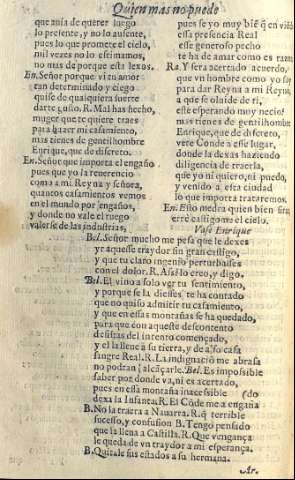 Quien mas no puede
que ania de querer luego
lo presente, y no lo ausente,
pues lo que promete el cielo,
mil vezes no lo estimamos,
no mas de porque esta lexos.
En. Señor porque vi en amor
tan determinado y ciego
quise de qualquiera suerte
darte gusto. R. Mal has hecho,
muger que te quiere traes
para hazer mi casamiento,
mas tienes de gentilhombre
Enrique, que de discreto.
En. Señor que importa el engaño
pues que yo la reuerencio
como a mi Reyna y señora,
quantos casamientos vemos
en el mundo por engaños,
y donde no vale el ruego
valerse de las industrias,
pues se yo muy biē q̄ en viēdo
essa presencia Real
esse generoso pecho
te ha de amar como es razon
Ra. Y sera acertado acuerdo,
que vn hombre como yo soy
para dar Reyna a mi Reyno,
a que se oluide de ti,
este esperando muy necio:
mas tienes de gentilhombre
Enrique, que de discreto,
vete Conde a esse lugar,
donde la dexas haziendo
diligencia de traerla,
que yo ni quiero, ni puedo,
y venido a esta ciudad
lo que importa trataremos.
En. Esto medra quien bien sirue
erre castigome el cielo.
Vase Enrique
Bel. Señor mucho me pesa que le dexes
yr aquesse traydor sin gran castigo,
y que tu claro ingenio perturbasses
con el dolor. R. Assi lo creo, y digo.
Bel. El vino a solo ver tu sentimiento,
y porque se la diesses te ha contado
que no quiso admitir tu casamiento,
y que en essas montañas se ha quedado,
para que con aqueste descontento
desistas del intento començado,
y el la lleue a su tierra, y de a su casa
sangre Real. R. La indignaciō me abrasa
no podran alcāçarle. Bel. Es impossible
saber por donde va, ni es acertado,
pues en essa montaña inaccessible
dexa la Infanta. R. El Cōde me a engañado
B. No la traera a Nauarra. R. q̄ terrible
sucesso, y confusion B. Tengo pensado
que la lleua a Castilla. R. Que vengança
le queda de vn traydor a mi esperança.
B. Quitale sus estados a su hermana.
Ar.